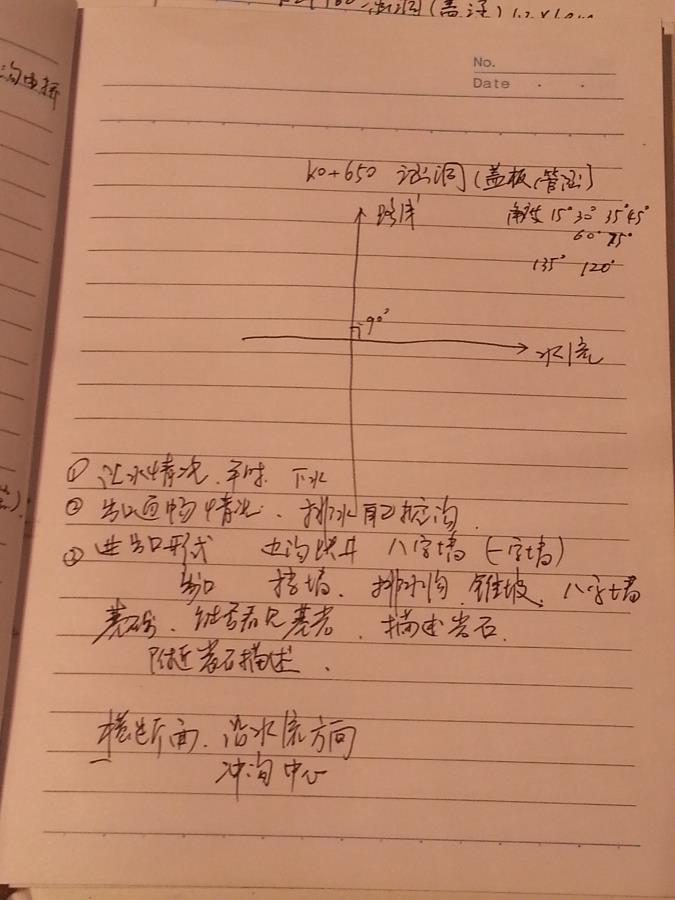 涵洞(盖
No.
Date
K0+650 涵洞(盖板,管涵)
路线
角度 15° 30° 35° 45°
60° 75°
135° 120°
90°
水流
① 汇水情况、平时 下水
② 出口通畅情况、排水 挖沟
③ 进出口形式 边沟跌井 八字墙(一字墙)
出口 挡墙、排水沟、锥坡、八字墙
基础、能否看见基岩、描述岩石.
附近岩石描述、
横断面、沿水流方向
冲沟中心